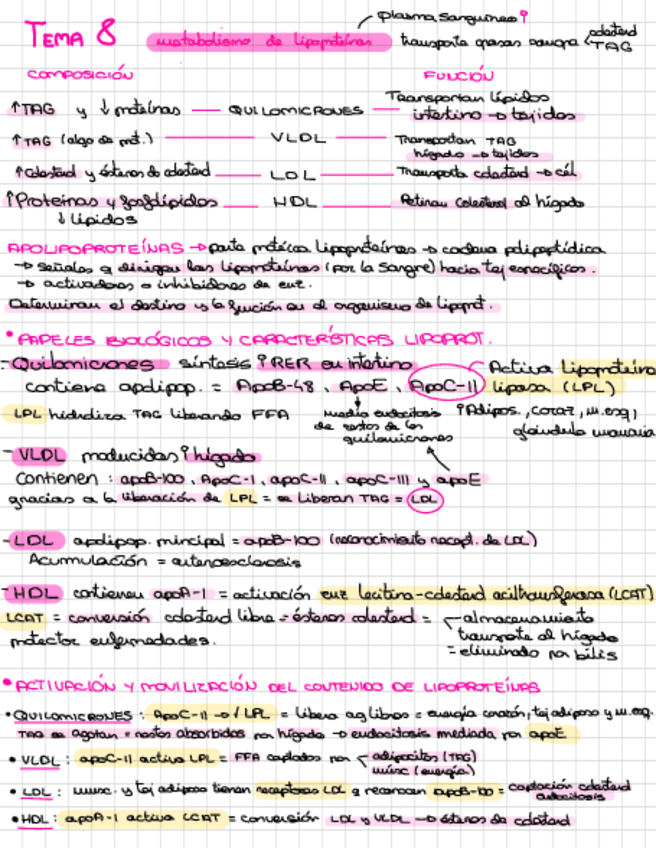 plasma sanguíneo
TEMA 8 metabolismo de lipoproteínas transporta grasas sangre < colesterol TAG
COMPOSICIÓN FUNCIÓN
↑TAG y ↓ proteínas — QUILOMICRONES — Transportan lípidos intestino → tejidos
↑TAG (algo de prot.) — VLDL — Transportan TAG hígado → tejidos
↑Colesterol y ésteres de colesterol — LDL — Transporta colesterol → cél
↑Proteínas y fosfolípidos ↓ lípidos — HDL — Retiran colesterol al hígado
APOLIPOPROTEÍNAS → parte proteica lipoproteínas → cadena polipeptídica
→ señales q dirigen las lipoproteínas (por la sangre) hacia tej específicos.
→ activadores o inhibidores de enz.
Determinan el destino y la función en el organismo de lipoprot.
• PAPELES BIOLÓGICOS Y CARACTERÍSTICAS LIPOPROT.
- Quilomicrones síntesis RER en intestino Activa lipoproteína
contiene apolipop. = ApoB-48, ApoE, ApoC-II lipasa (LPL)
LPL hidroliza TAG liberando FFA media endocitosis de restos de los quilomicrones Adipos., coraz, m. esq, glándula mamaria
- VLDL producidas hígado
Contienen: apoB-100, ApoC-I, apoC-II, apoC-III y apoE
gracias a la liberación de LPL = se liberan TAG = LDL
- LDL apolipop. principal = apoB-100 (reconocimiento recept. de LDL)
Acumulación = aterosclerosis
- HDL contienen apoA-1 = activación enz lecitina-colesterol aciltransferasa (LCAT)
LCAT = conversión colesterol libre - ésteres colesterol = almacenamiento
protector enfermedades. transporte al hígado
= eliminado por bilis
• ACTIVACIÓN Y MOVILIZACIÓN DEL CONTENIDO DE LIPOPROTEÍNAS
• QUILOMICRONES: ApoC-II → LPL = libera ag libres = energía corazón, tej adiposo y m. esq.
TAG se agotan = restos absorbidos por hígado → endocitosis mediada por apoE
• VLDL: apoC-II activa LPL = FFA captados por < adipocitos (TAG) músc (energía)
• LDL: musc. y tej adiposo tienen receptores LDL q reconocen apoB-100 = captación colesterol endocitosis
• HDL: apoA-1 activa LCAT = conversión LDL y VLDL → ésteres de colesterol